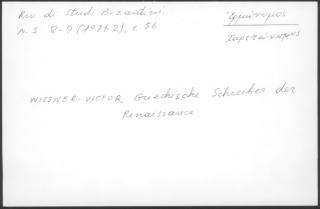 Riv. di Studi Bizantini.
N.S. 8-9 (1971-2), σ 56
Ἑρμώνυμος
Χαριτώνυμος
WIESNER-VICTOR, Griechische Schreiber der
Renaissance